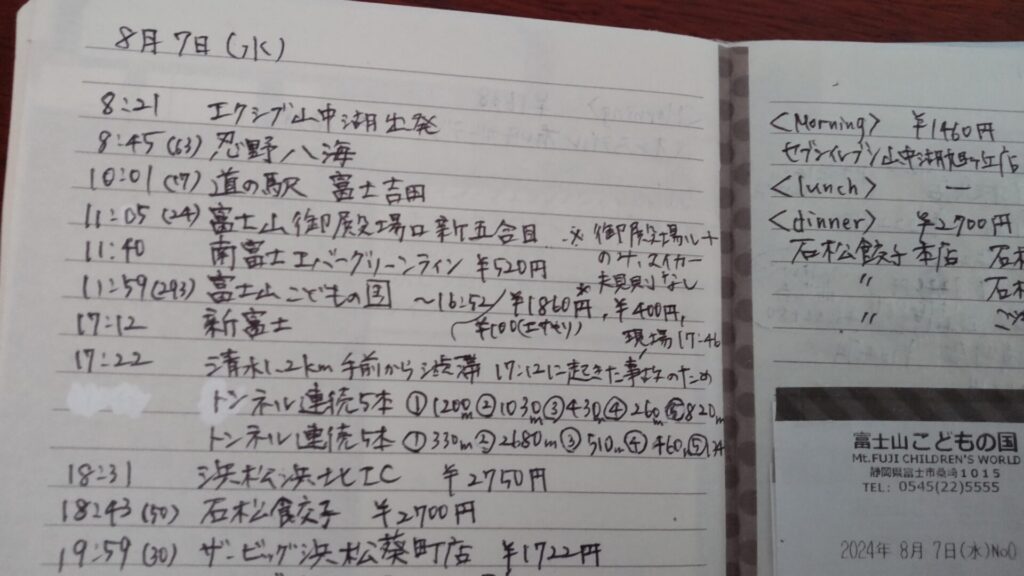 8月7日(水)
8:21 エクシブ山中湖出発
8:45(63) 忍野八海
10:01(17) 道の駅 富士吉田
11:05(24) 富士山御殿場口新五合目 ※御殿場ルート
のみ、マイカー
規制なし
11:40 南富士エバーグリーンライン ¥520円
11:59(293) 富士山こどもの国 〜16:52/¥1860円,¥400円,
¥100(エサやり)
17:12 新富士
現場17:46
17:22 清水1.2km手前から渋滞 17:12に起きた事故のため
トンネル連続5本 ①1200m②1030m③430m④260m⑤820m
トンネル連続5本 ①330m②2680m③510m④460m⑤
18:31 浜松浜北IC ¥2750円
18:43(50) 石松餃子 ¥2700円
19:59(30) ザ・ビッグ浜松葵町店 ¥1722円
<Morning> ¥1460円
セブンイレブン山中湖旭ヶ丘店
<lunch> —
<dinner> ¥2700円
石松餃子本店 石
〃 石
〃
富士山こどもの国
Mt.FUJI CHILDREN'S WORLD
静岡県富士市桑崎1015
TEL: 0545(22)5555
2024年 8月 7日(水)No0